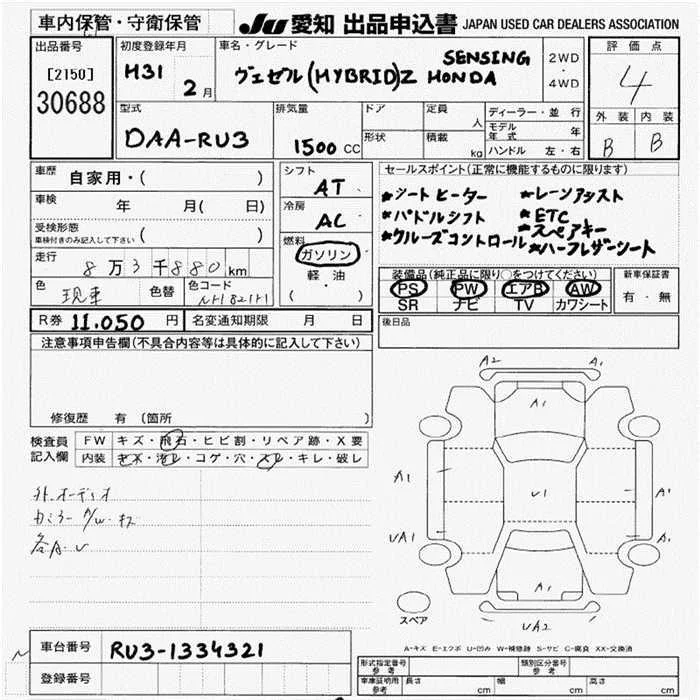 車内保管・守衛保管
JU 愛知 出品申込書 JAPAN USED CAR DEALERS ASSOCIATION
出品番号
[2150]
30688
初度登録年月
H31 2月
車名・グレード
ヴェゼル(HYBRID)Z HONDA SENSING
2WD
・
4WD
評価点
4
外装 内装
B B
型式
DAA-RU3
排気量
1500 CC
ドア
形状
定員 人
積載 kg
ディーラー・並行
モデル年式 年
ハンドル 左・右
車歴 自家用・( )
車検 年 月( 日)
受検形態
車検付きのみ記入して下さい ( )
走行 8万3千880km
色 現車 色替 色コード NH821H
シフト
AT
冷房
AC
燃料
ガソリン
・
軽油
( )
セールスポイント(正常に機能するものに限ります)
*シートヒーター *レーンアシスト
*パドルシフト *ETC
*スペアキー
*クルーズコントロール *ハーフレザーシート
装備品(純正品に限り○をつけてください)
PS PW エアB AW
SR ナビ TV カワシート
新車保証書
有・無
R券 11.050 円 名変通知期限 月 日
後日品
注意事項申告欄(不具合内容等は具体的に記入して下さい)
修復歴 有 (箇所 )
検査員
記入欄
FW キズ・飛石・ヒビ割・リペア跡・X要
内装 キズ・汚レ・コゲ・穴・スレ・キレ・破レ
外.オーディオ
カミラー A/W.キズ
各A.U
A2 A1
A1
A1 U1 A1
UA1 A1
A1
UA2
スペア
A-キズ E-エクボ U-凹み W-補修跡 S-サビ C-腐食 XX-交換済
車台番号 RU3-1334321
登録番号
形式指定番号
参考
類別区分番号
参考
車庫証明用
参考
長さ cm 幅 cm 高さ cm